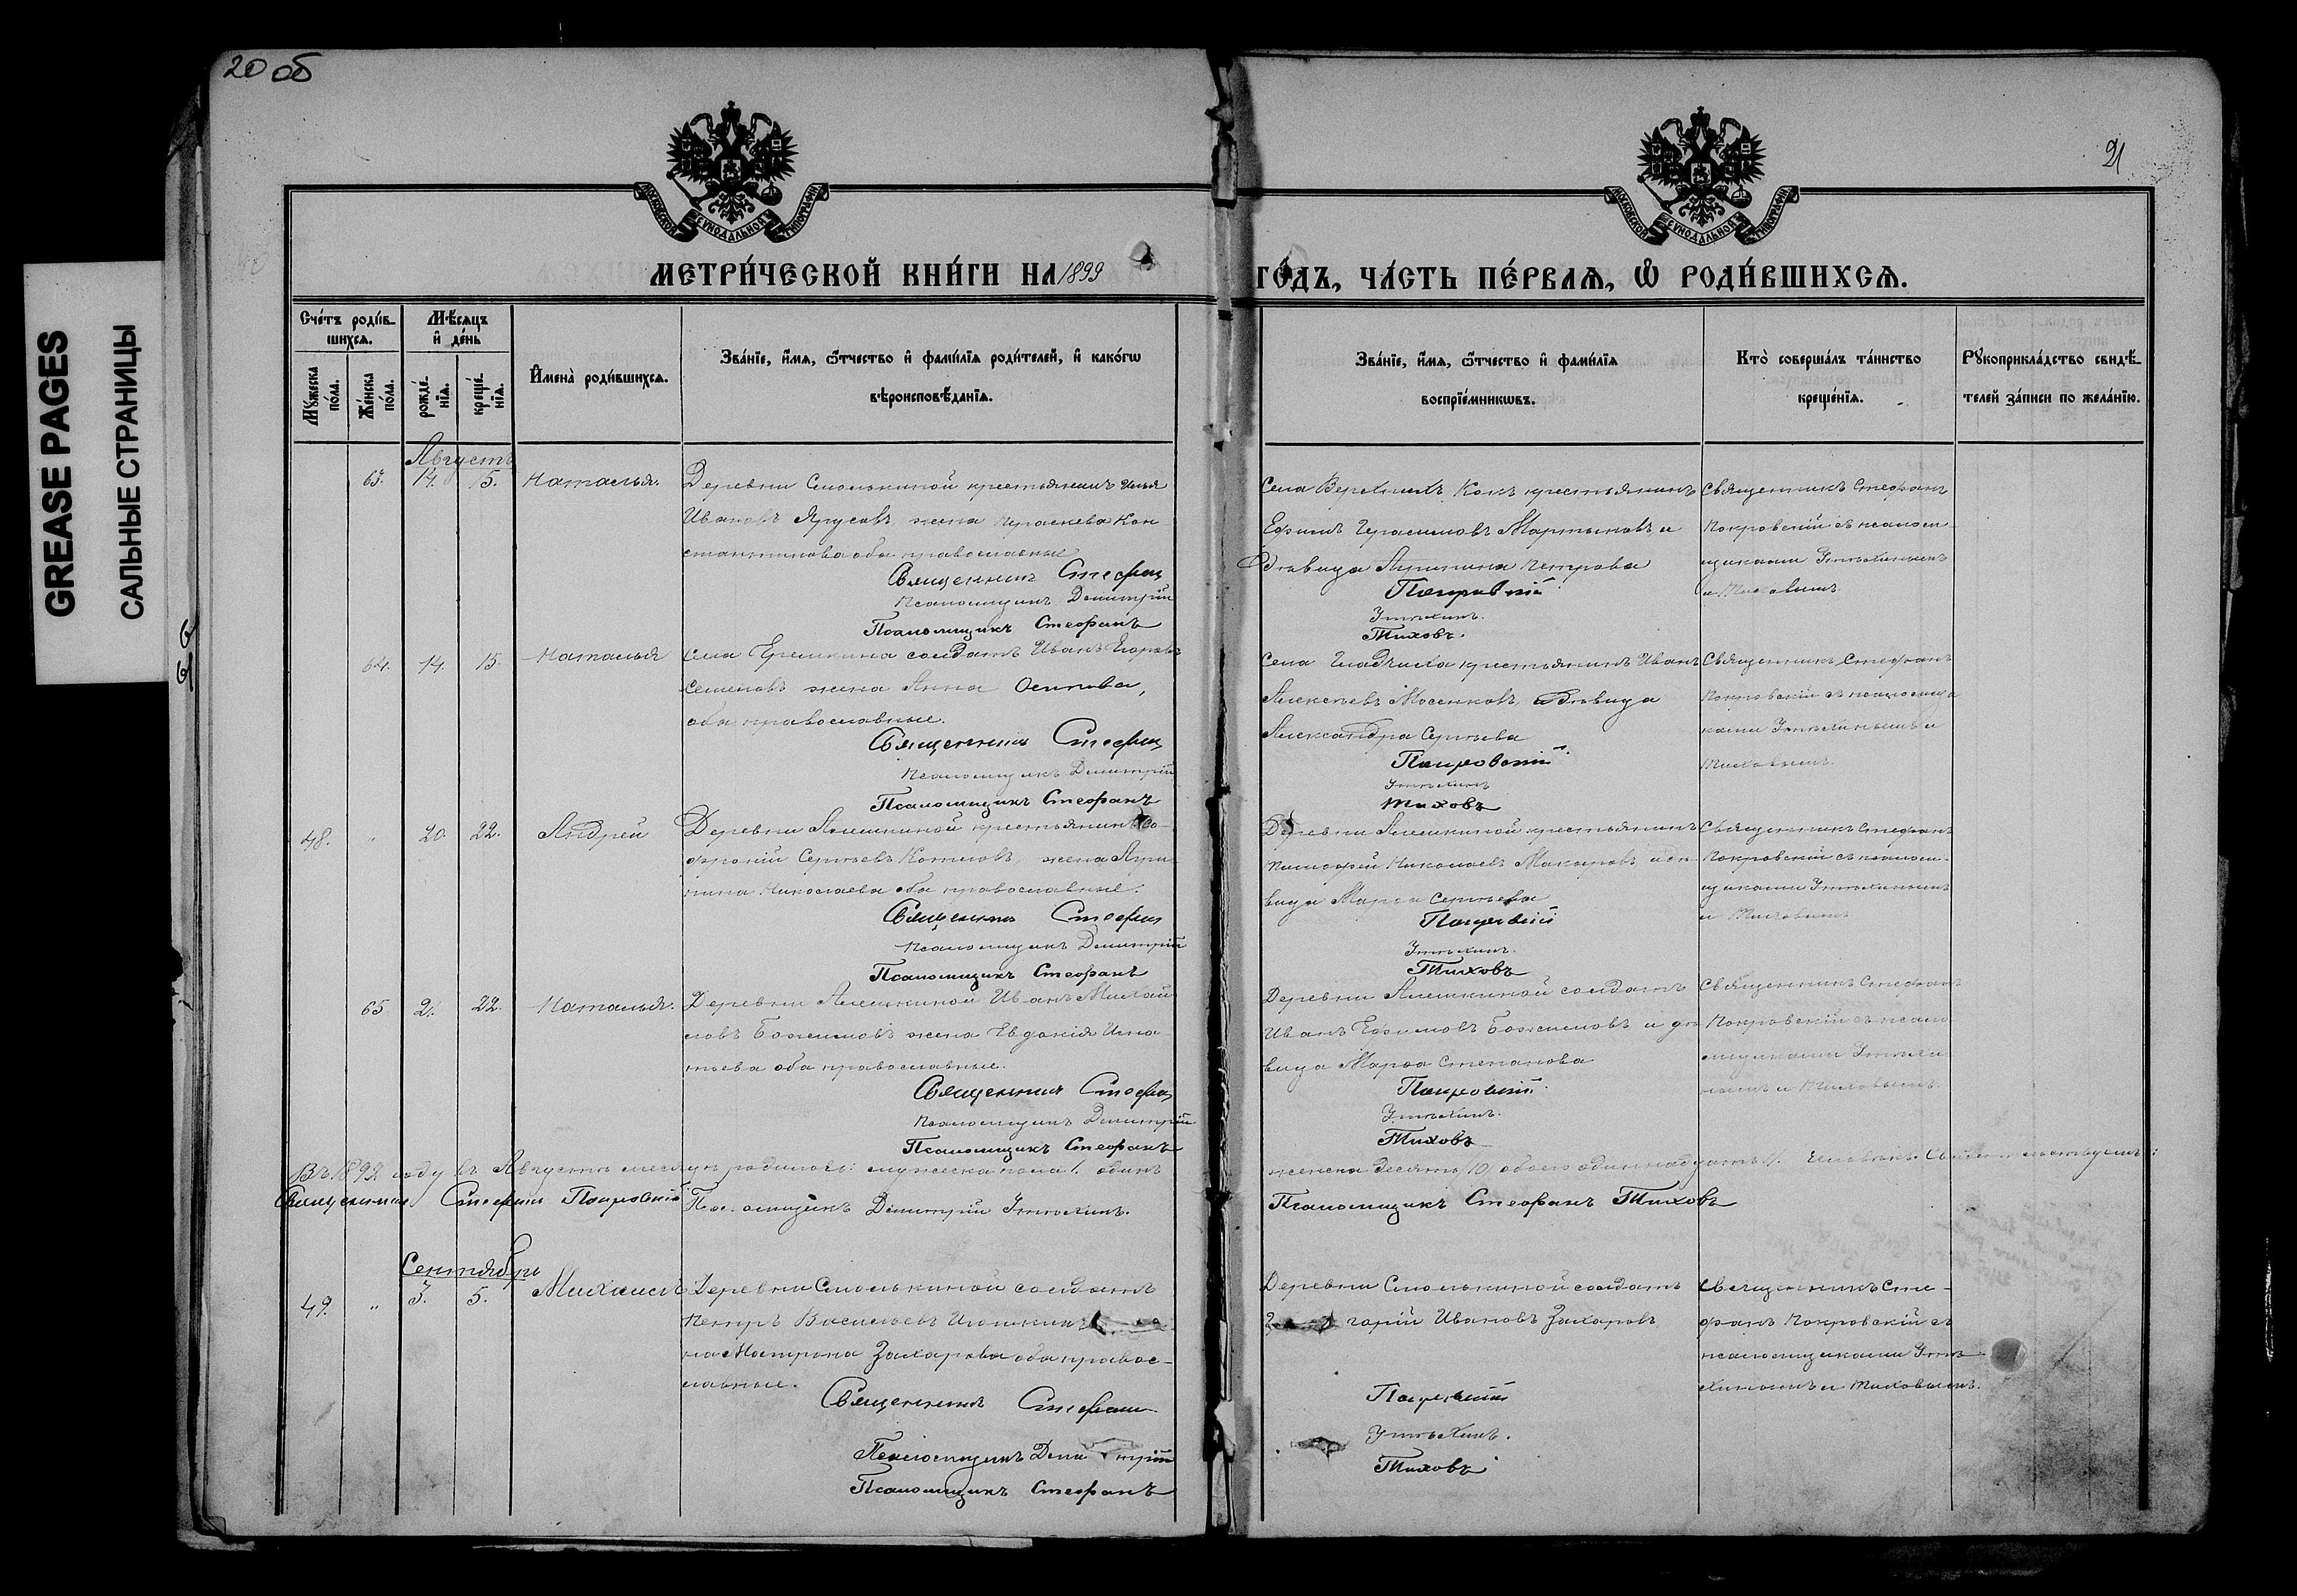 20 об
21
GREASE PAGES
САЛЬНЫЕ СТРАНИЦЫ
МОСКОВСКОЙ СѴНОДАЛЬНОЙ ТИПОГРАФІИ
МОСКОВСКОЙ СѴНОДАЛЬНОЙ ТИПОГРАФІИ
МЕТРИ́ЧЕСКОЙ КНИ́ГИ НА 1899 ГО́ДЪ, ЧА́СТЬ ПЕ́РВАЯ, Ѡ҆ РОДИ́ВШИХСЯ.
Сче́тъ роди́в-
шихся.
Мѣ́сяцъ
и҆ де́нь
Му́жеска по́ла.
Же́нска по́ла.
рожде́нїя.
креще́нїя.
И҆мена̀ роди́вшихся.
Зва́нїе, и҆́мя, ѻ҆́тчество и҆ фами́лїя роди́телей, и҆ како́гѡ
вѣроисповѣ́данїя.
Зва́нїе, и҆́мя, ѻ҆́тчество и҆ фами́лїя
воспрїе́мникѡвъ.
Кто̀ соверша́лъ та́инство
креще́нїя.
Рꙋкоприкла́дство свидѣ́-
телей за́писи по жела́нїю.
Августъ
63. 14. 15. Наталья.
Деревни Смолькиной крестьянинъ Илья
Ивановъ Ярусовъ, жена Параскева Кон
стантинова оба православные
Священникъ Стефан
Псаломщикъ Димитрій
Псаломщикъ Стефанъ
Села Верхнихъ Кокъ крестьянинъ
Ефимъ Герасимовъ Мартыновъ и
дѣвица Агрипина Петрова
Покровскій
Утѣхинъ.
Тиховъ.
Священникъ Стефанъ
Покровскій съ псалом-
щиками Утѣхинымъ
и Тиховымъ.
64. 14. 15. Наталья
Села Еремкина солдатъ Иванъ Егоровъ
Семеновъ жена Анна Осипова,
оба православные.
Священникъ Стефан
Псаломщикъ Димитрій
Псаломщикъ Стефанъ
Села Гладчиха крестьянинъ Иванъ
Алексѣевъ Мосенковъ, дѣвица
Александра Сергѣева
Покровскій
Утѣхинъ
Тиховъ
Священникъ Стефанъ
Покровскій съ псаломщи
ками Утѣхинымъ и
Тиховымъ.
48. " 20. 22. Андрей
Деревни Алешкиной крестьянинъ Со-
фроній Сергѣевъ Котловъ, жена Агри-
пина Николаева оба православные.
Священникъ Стефан
Псаломщикъ Димитрій
Псаломщикъ Стефанъ
Деревни Алешкиной крестьянинъ
Тимофей Николаевъ Макаровъ и дѣ-
вица Марфа Сергѣева
Покровскій
Утѣхинъ.
Тиховъ
Священникъ Стефанъ
Покровскій съ псалом-
щиками Утѣхинымъ
и Тиховымъ
65 21. 22. Наталья.
Деревни Алешкиной Иванъ Михай
ловъ Божемовъ жена Евдокія Игна
тьева оба православные.
Священникъ Стефан
Псаломщикъ Димитрій
Псаломщикъ Стефанъ
Деревни Алешкиной солдатъ
Иванъ Ефимовъ Божемовъ и дѣ
вица Марфа Степанова
Покровскій.
Утѣхинъ.
Тиховъ
Священникъ Стефанъ
Покровскій съ псало
мщиками Утѣхи
нымъ и Тиховымъ.
Въ 1899 году въ Августѣ месяцѣ родилось: мужеска пола 1, одинъ женска десять /10/ обоего одиннадцать человѣкъ. Свидѣтельствуемъ:
Священникъ Стефанъ Покровскій Псаломщикъ Димитрій Утѣхинъ. Псаломщикъ Стефанъ Тиховъ
Сентябрь
49. " 3. 5. Михаилъ
Деревни Смолькиной солдатъ
Петръ Васильевъ Игошкинъ
на Матрона Захарова оба правос-
лавные.
Священникъ Стефанъ
Псаломщикъ Димитрій
Псаломщикъ Стефанъ
Деревни Смолькиной солдатъ
горій Ивановъ Захаровъ
Покровскій
Утѣхинъ.
Тиховъ
Священникъ Сте-
фанъ Покровскій съ
псаломщиками Утѣ
хинымъ и Тиховымъ.